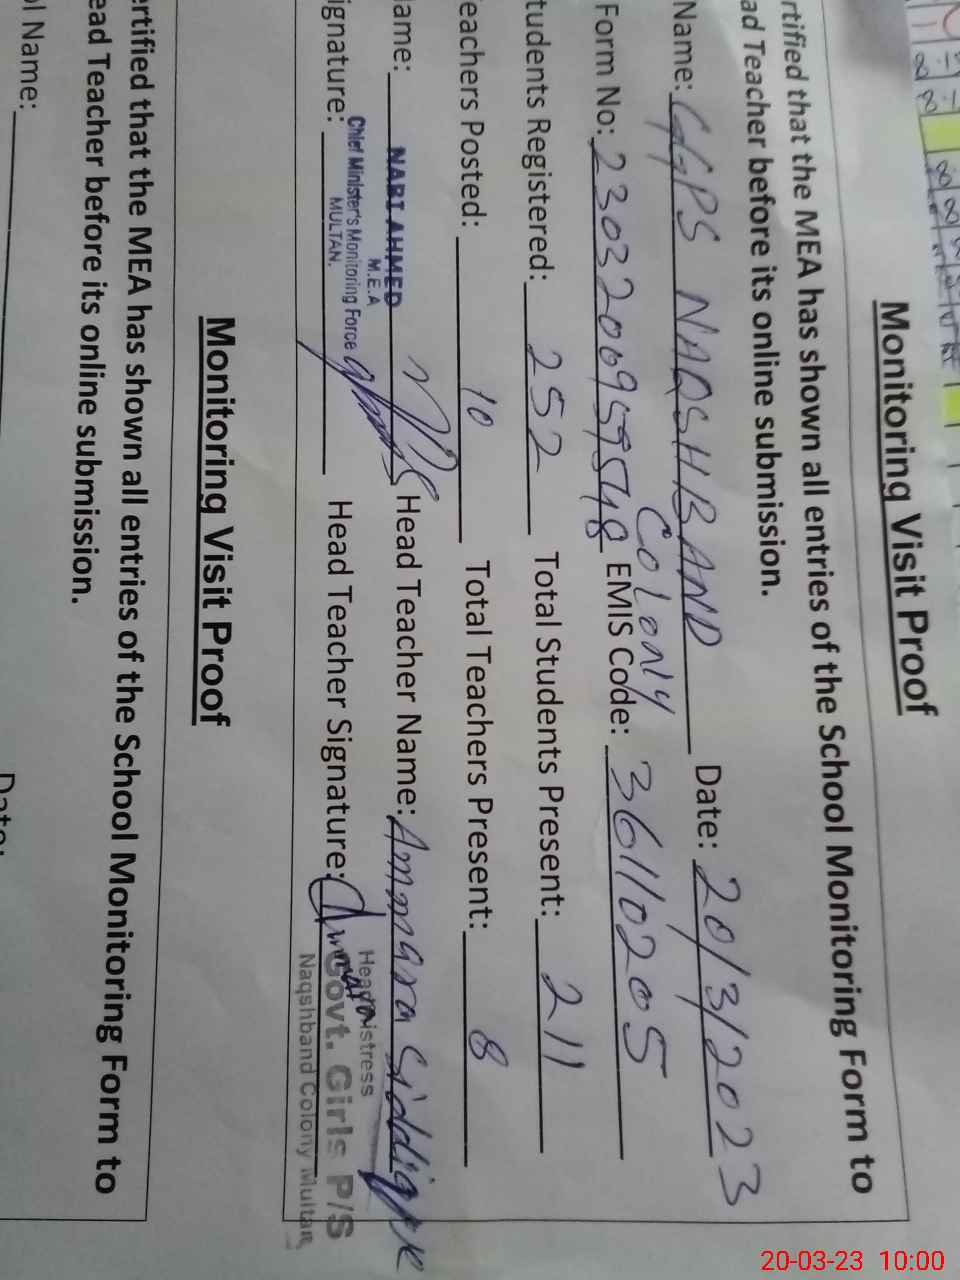 Monitoring Visit Proof
rtified that the MEA has shown all entries of the School Monitoring Form to
ad Teacher before its online submission.
Name: GGPS NAQSHBAND Date: 20/3/2023
Colony
Form No: 2303200959548 EMIS Code: 36110205
tudents Registered: 252 Total Students Present: 211
eachers Posted: 10 Total Teachers Present: 8
ame: NABI AHMED Head Teacher Name: Ammara Siddique
M.E.A
Chief Minister's Monitoring Force
MULTAN.
ignature: Head Teacher Signature:
Headmistress
Govt. Girls P/S
Naqshband Colony Multan
Monitoring Visit Proof
ertified that the MEA has shown all entries of the School Monitoring Form to
ead Teacher before its online submission.
ol Name: Date:
20-03-23 10:00